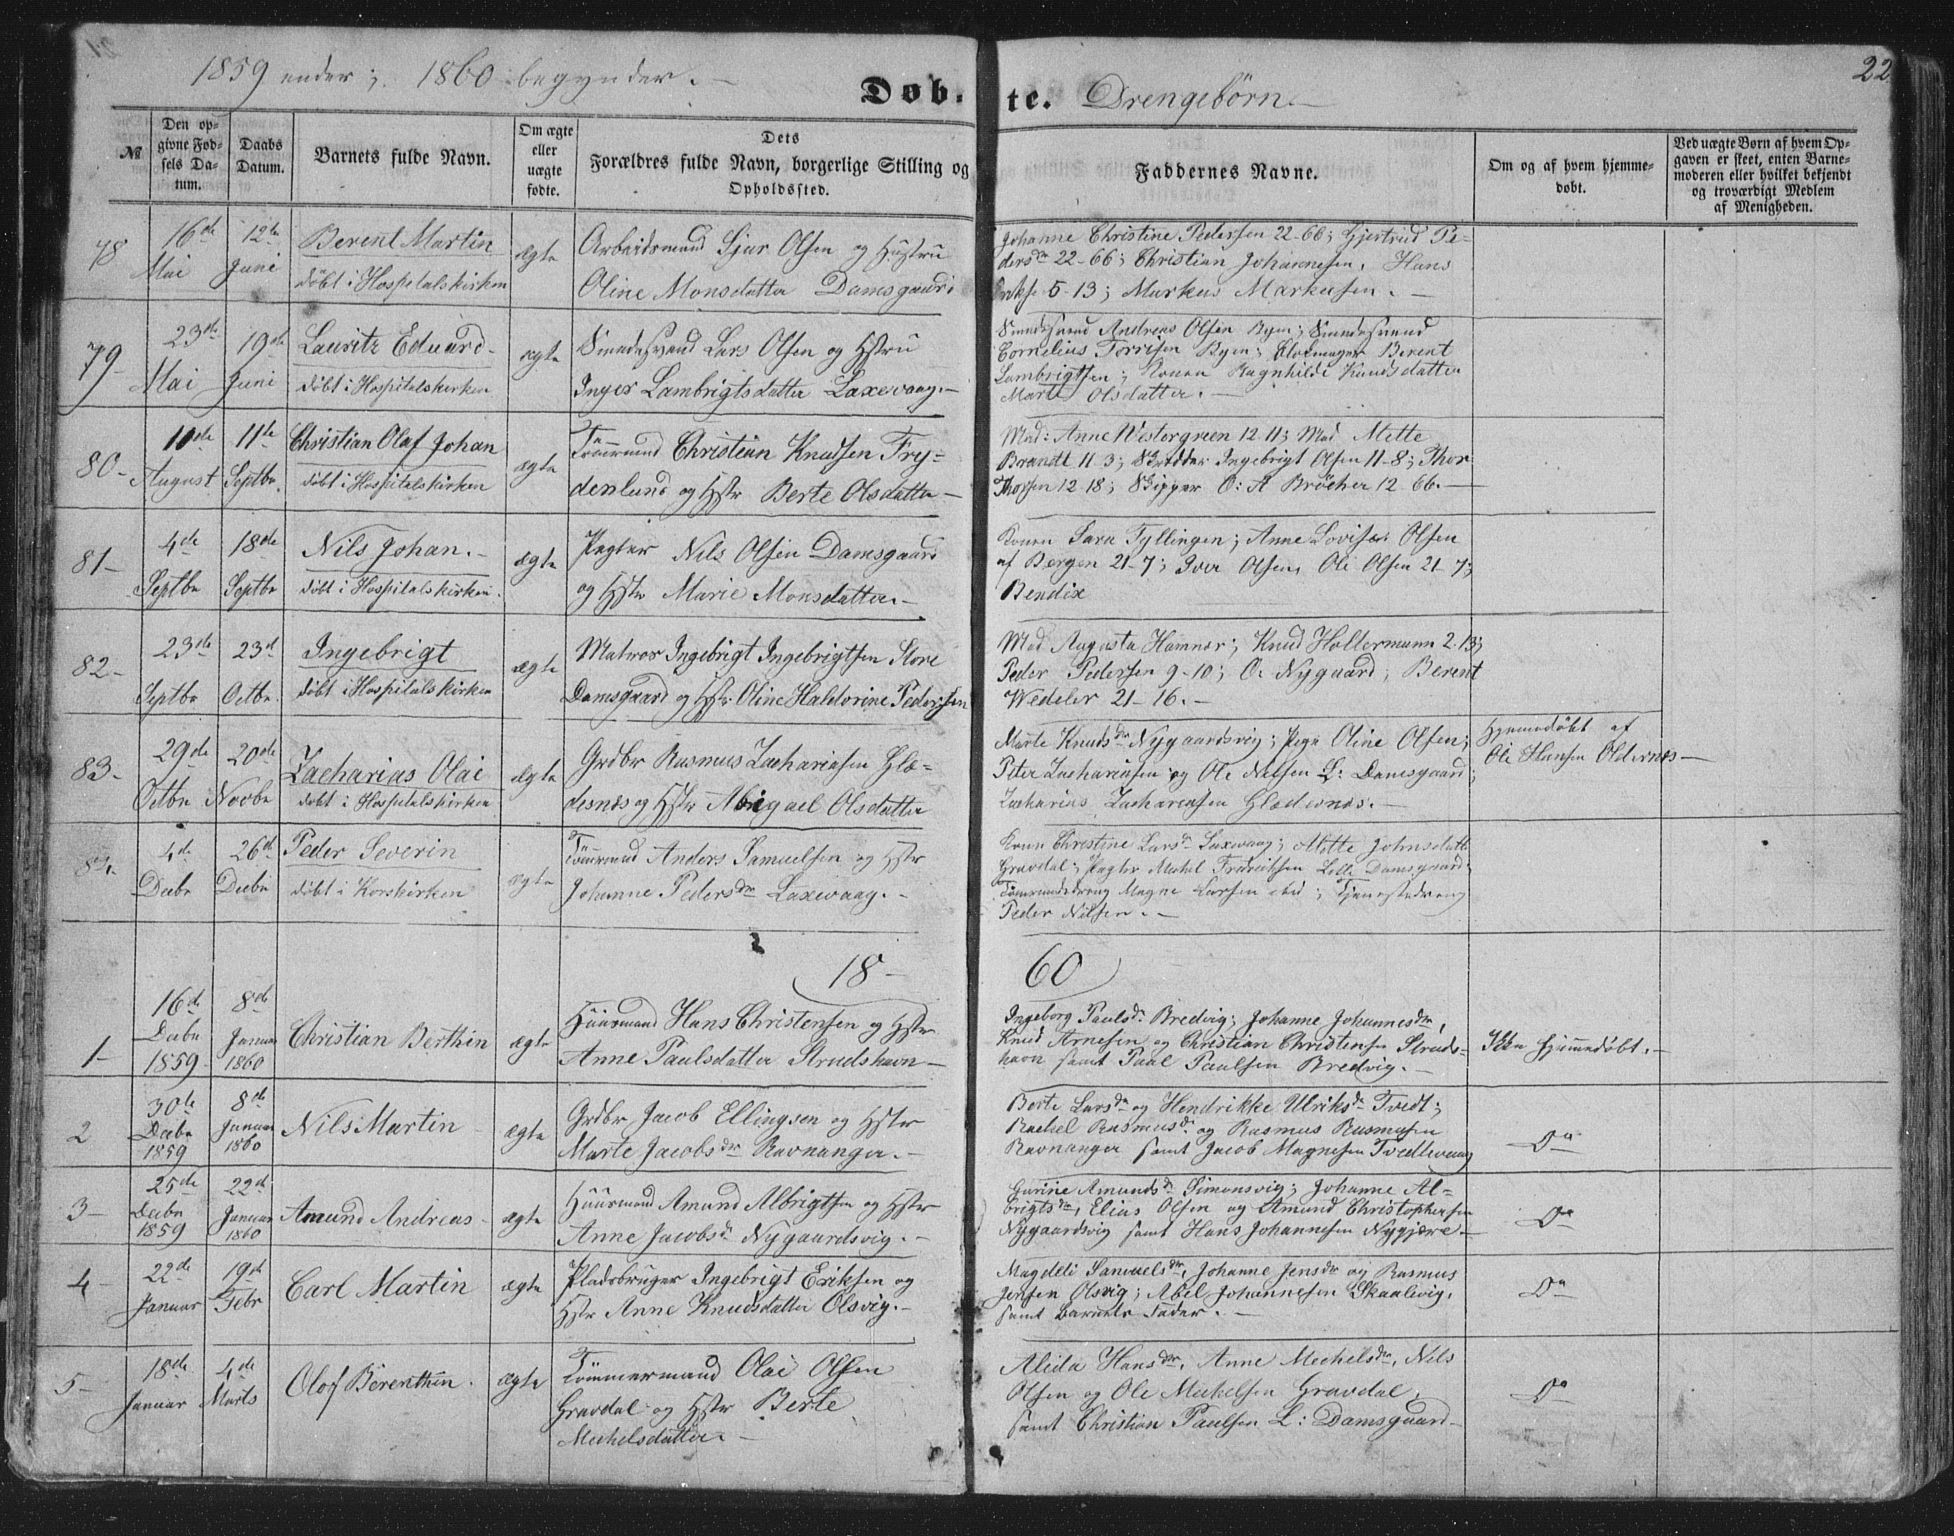 22
1859 ender; 1860 begynder. —
Døb. te. Drengebørn. —
№
Den op-
givne Fød-
sels Da-
tum.
Daabs
Datum.
Barnets fulde Navn.
Om ægte
eller
uægte
fødte.
Dets
Forældres fulde Navn, borgerlige Stilling og
Opholdssted.
Faddernes Navne.
Om og af hvem hjemme-
døbt.
Ved uægte Børn af hvem Op-
gaven er skeet, enten Barne-
moderen eller hvilket bekjendt
og troværdigt Medlem
af Menigheden.
78
16de
Mai
12te
Juni
Berent Martin
døbt i Hospitalskirken
ægte
Arbeidsmand Sjur Olsen og Hustru
Oline Monsdatter Damsgaard
Johanne Christine Pedersen 22-66; Gjertrud Pe-
dersdr 22-66; Christian Johannesen, Hans
5-13; Markus Markusen. —
79-
23de
Mai
19de
Juni
Lauritz Eduard-
døbt i Hospitalskirken
ægte
Smedesvend Lars Olsen og Hstru
Inger Lambrigtsdatter Laxevaag. —
Smedesvend Andreas Olsen Byen; Smedesvend
Cornelius Torrisen Byen; Berent
Lambrigtsen; Konen Ragnhilde Knudsdatter
Marte Olsdatter. —
80-
10de
August
11te
Septbr
Christian Olaf Johan
døbt i Hospitalskirken
ægte
Tömmrmnd Christian Knudsen Fry-
denlund og Hstr Berte Olsdatter —
Mad: Anne Westergreen 12-11; Mad Mette
Brandt 11-3; Skrædder Ingebrigt Olsen 11-8; Thor
Thorsen 12-18; Skipper O: A Bröcher 12-66. —
81-
4de
Septbr
18de
Septbr
Nils Johan. -
døbt i Hospitalskirken.
ægte
Pagter Nils Olsen Damsgaard
og Hstr Marie Monsdatter. —
Konen Sara Tyllingen; Anne Lovise Olsen
af Bergen 21-7; Iver Olsen, Ole Olsen 21-7;
Bendix
82-
23de
Septbr
23d
Octbr
Ingebrigt
døbt i Hospitalskirken
ægte
Matros Ingebrigt Ingebrigtsen Store
Damsgaard og Hstr Oline Haldorine Pedersen
Mad Augusta Hamner; Knud Holtermann 2-13;
Peder Pedersen 9-10; O. Nygaard; Berent
Wedeler 21-16. —
83-
29de
Octbr
20de
Novbr
Zacharias Olai
døbt i Hospitalskirken
ægte
Grdbr Rasmus Zachariasen Glæ-
desnæs og Hstr Abigael Olsdatter
Marte Knudsdr Nygaardsvig; Pige Oline Olsen;
Peter Zachariasen og Ole Nilsen L: Damsgaard;
Zacharias Zachariasen Glædesnæs. —
Hjemmedøbt af
Ole Hansen Oldernæs —
84-
4de
Decbr
26de
Decbr
Peder Severin
døbt i Korskirken
ægte
Tömmrmnd Anders Samuelsen og Hstr
Johanne Pedersdr Laxevaag. -
Konen Christine Larsdr Laxevaag; Mette Johnsdatter
Gravdal; Pagter Mikkel Fredriksen Lille Damsgaard;
Tömmrmndsdreng Magne Larsen ibid; Tjenestedreng
Peder Nilsen. —
18-
60
1-
16de
Decbr
1859
8de
Januar
1860
Christian Berthin
ægte
Huusmand Hans Christensen og Hstr
Anne Paulsdatter Strudshavn —
Ingeborg Paulsdr Bredvig; Johanne Johannesdr,
Knud Arnesen og Christian Christensen Struds-
havn samt Paul Paulsen Bredvig. —
Ikke hjemmedøbt. —
2
30te
Decbr
1859
8de
Januar
1860
Nils Martin
ægte
Grdbr Jacob Ellingsen og Hstr
Marte Jacobsdr Ravnanger. —
Berte Larsdr og Hendrikke Ulriksdr Tvedt;
Rachel Rasmusdr og Rasmus Rasmusen
Ravnanger samt Jacob Magnesen Tvedtevaag
Do
3-
25de
Decbr
1859
22de
Januar
1860
Amund Andreas
ægte
Huusmand Amund Albrigtsen og Hstr
Anne Jacobsdr Nygaardsvig. —
Gurine Amundsdr Simonsvig; Johanne Al-
brigtsdr, Elias Olsen og Amund Christophersen
Nygaardsvig samt Hans Johannesen Nygjære —
Do
4-
22de
Januar
19de
Febr
Carl Martin
ægte
Pladsbruger Ingebrigt Eriksen og
Hstr Anne Knudsdatter Olsvig. —
Magdeli Samuelsdr, Johanne Jensdr og Rasmus
Jensen Olsvig; Abel Johannesen Skaalevig,
samt Barnets Fader. —
Do
5-
18de
Januar
4de
Marts
Olof Berenthin.
ægte
Tömmermand Olai Olsen
Gravdal og Hstr Berte
Mechelsdatter. —
Alida Hansdr, Anne Mechelsdr, Nils
Olsen og Ole Meckelsen Gravdal,
samt Christian Paulsen L: Damsgaard —
Do